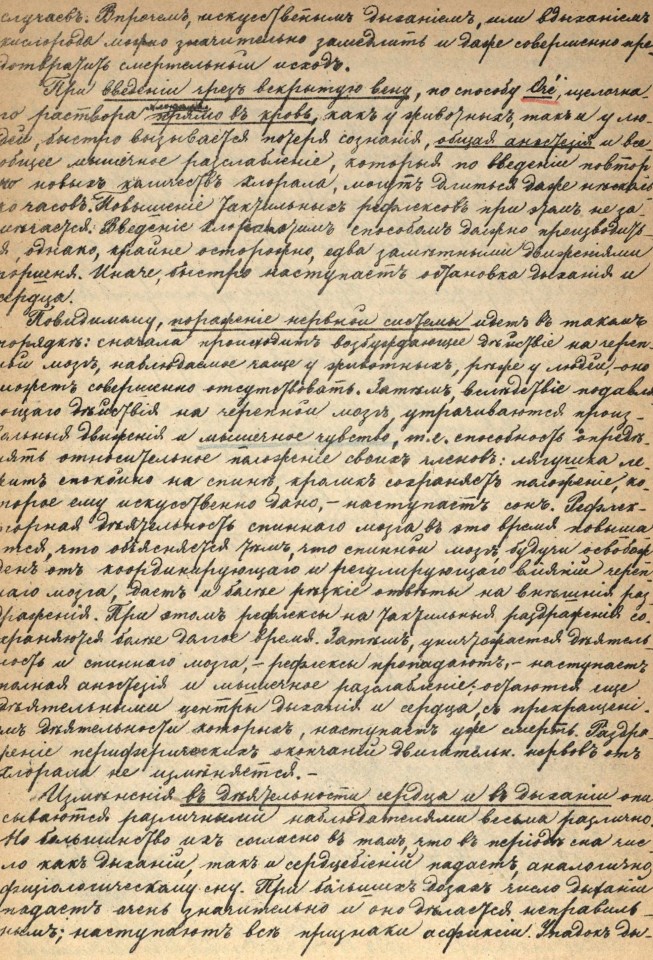 случаевъ. Впрочемъ, искусственнымъ дыханіемъ, или вдыханіемъ
кислорода можно значительно замедлить и даже совершенно пре
дотвратить смертельный исходъ.
При введеніи чрезъ вскрытую вену, по способу Oré, щелочна
го раствора хлорала прямо въ кровь, какъ у животныхъ, такъ и у лю
дей, быстро вызывается потеря сознанія, общая анэстезія и все
общее мышечное разслабленіе, которыя по введеніи повтор
но новыхъ количествъ хлорала, могутъ длиться даже нѣсколь
ко часовъ. Повышеніе тактильныхъ рефлексовъ при этомъ не за
мѣчается. Введеніе хлорала этимъ способомъ должно производить
я, однако, крайне осторожно, едва замѣтными движеніями
поршня. Иначе, быстро наступаетъ остановка дыханія и
сердца.
Повидимому, пораженіе нервной системы идетъ въ такомъ
порядкѣ: сначала происходитъ возбуждающее дѣйствіе на череп
ной мозгъ, наблюдаемое чаще у животныхъ, рѣже у людей, - оно
можетъ совершенно отсутствовать. Затѣмъ, вслѣдствіе подавля
ющаго дѣйствія на черепной мозгъ, утрачиваются произ-
вольныя движенія и мышечное чувство, т.е. способность опредѣ
лять относительное положеніе своихъ членовъ: лягушка ле
житъ спокойно на спинѣ, кроликъ сохраняетъ положеніе, ко
торое ему искусственно дано, - наступаетъ сонъ. Рефлек-
торная дѣятельность спиннаго мозга въ это время повыша
тся, что объясняется тѣмъ, что спинной мозгъ, будучи освобож
денъ отъ координирующаго и регулирующаго вліяній череп
наго мозга, даетъ и болѣе рѣзкіе отвѣты на внѣшнія раз
драженія. При этомъ рефлексы на тактильныя раздраженія со-
храняются болѣе долгое время. Затѣмъ, уничтожается дѣятель-
ность и спиннаго мозга, - рефлексы пропадаютъ, - наступаетъ
полная анэстезія и мышечное разслабленіе; остаются еще
дѣятельными центры дыханія и сердца, съ прекращені
мъ дѣятельности которыхъ, наступаетъ уже смерть. Раздра
женіе периферическихъ окончаній двигательн. нервовъ отъ
хлорала не измѣняется. -
Измѣненія въ дѣятельности сердца и въ дыханіи опи
сываются различными наблюдателями весьма различно.
Но большинство ихъ согласно въ томъ, что въ періодъ сна чис
ло какъ дыханій, такъ и сердцебіеній падаетъ, аналогично
физіологическому сну. При бо́льшихъ дозахъ число дыханій
падаетъ очень значительно и оно дѣлается неправиль-
нымъ; наступаютъ всѣ признаки асфиксіи. Упадокъ ды-